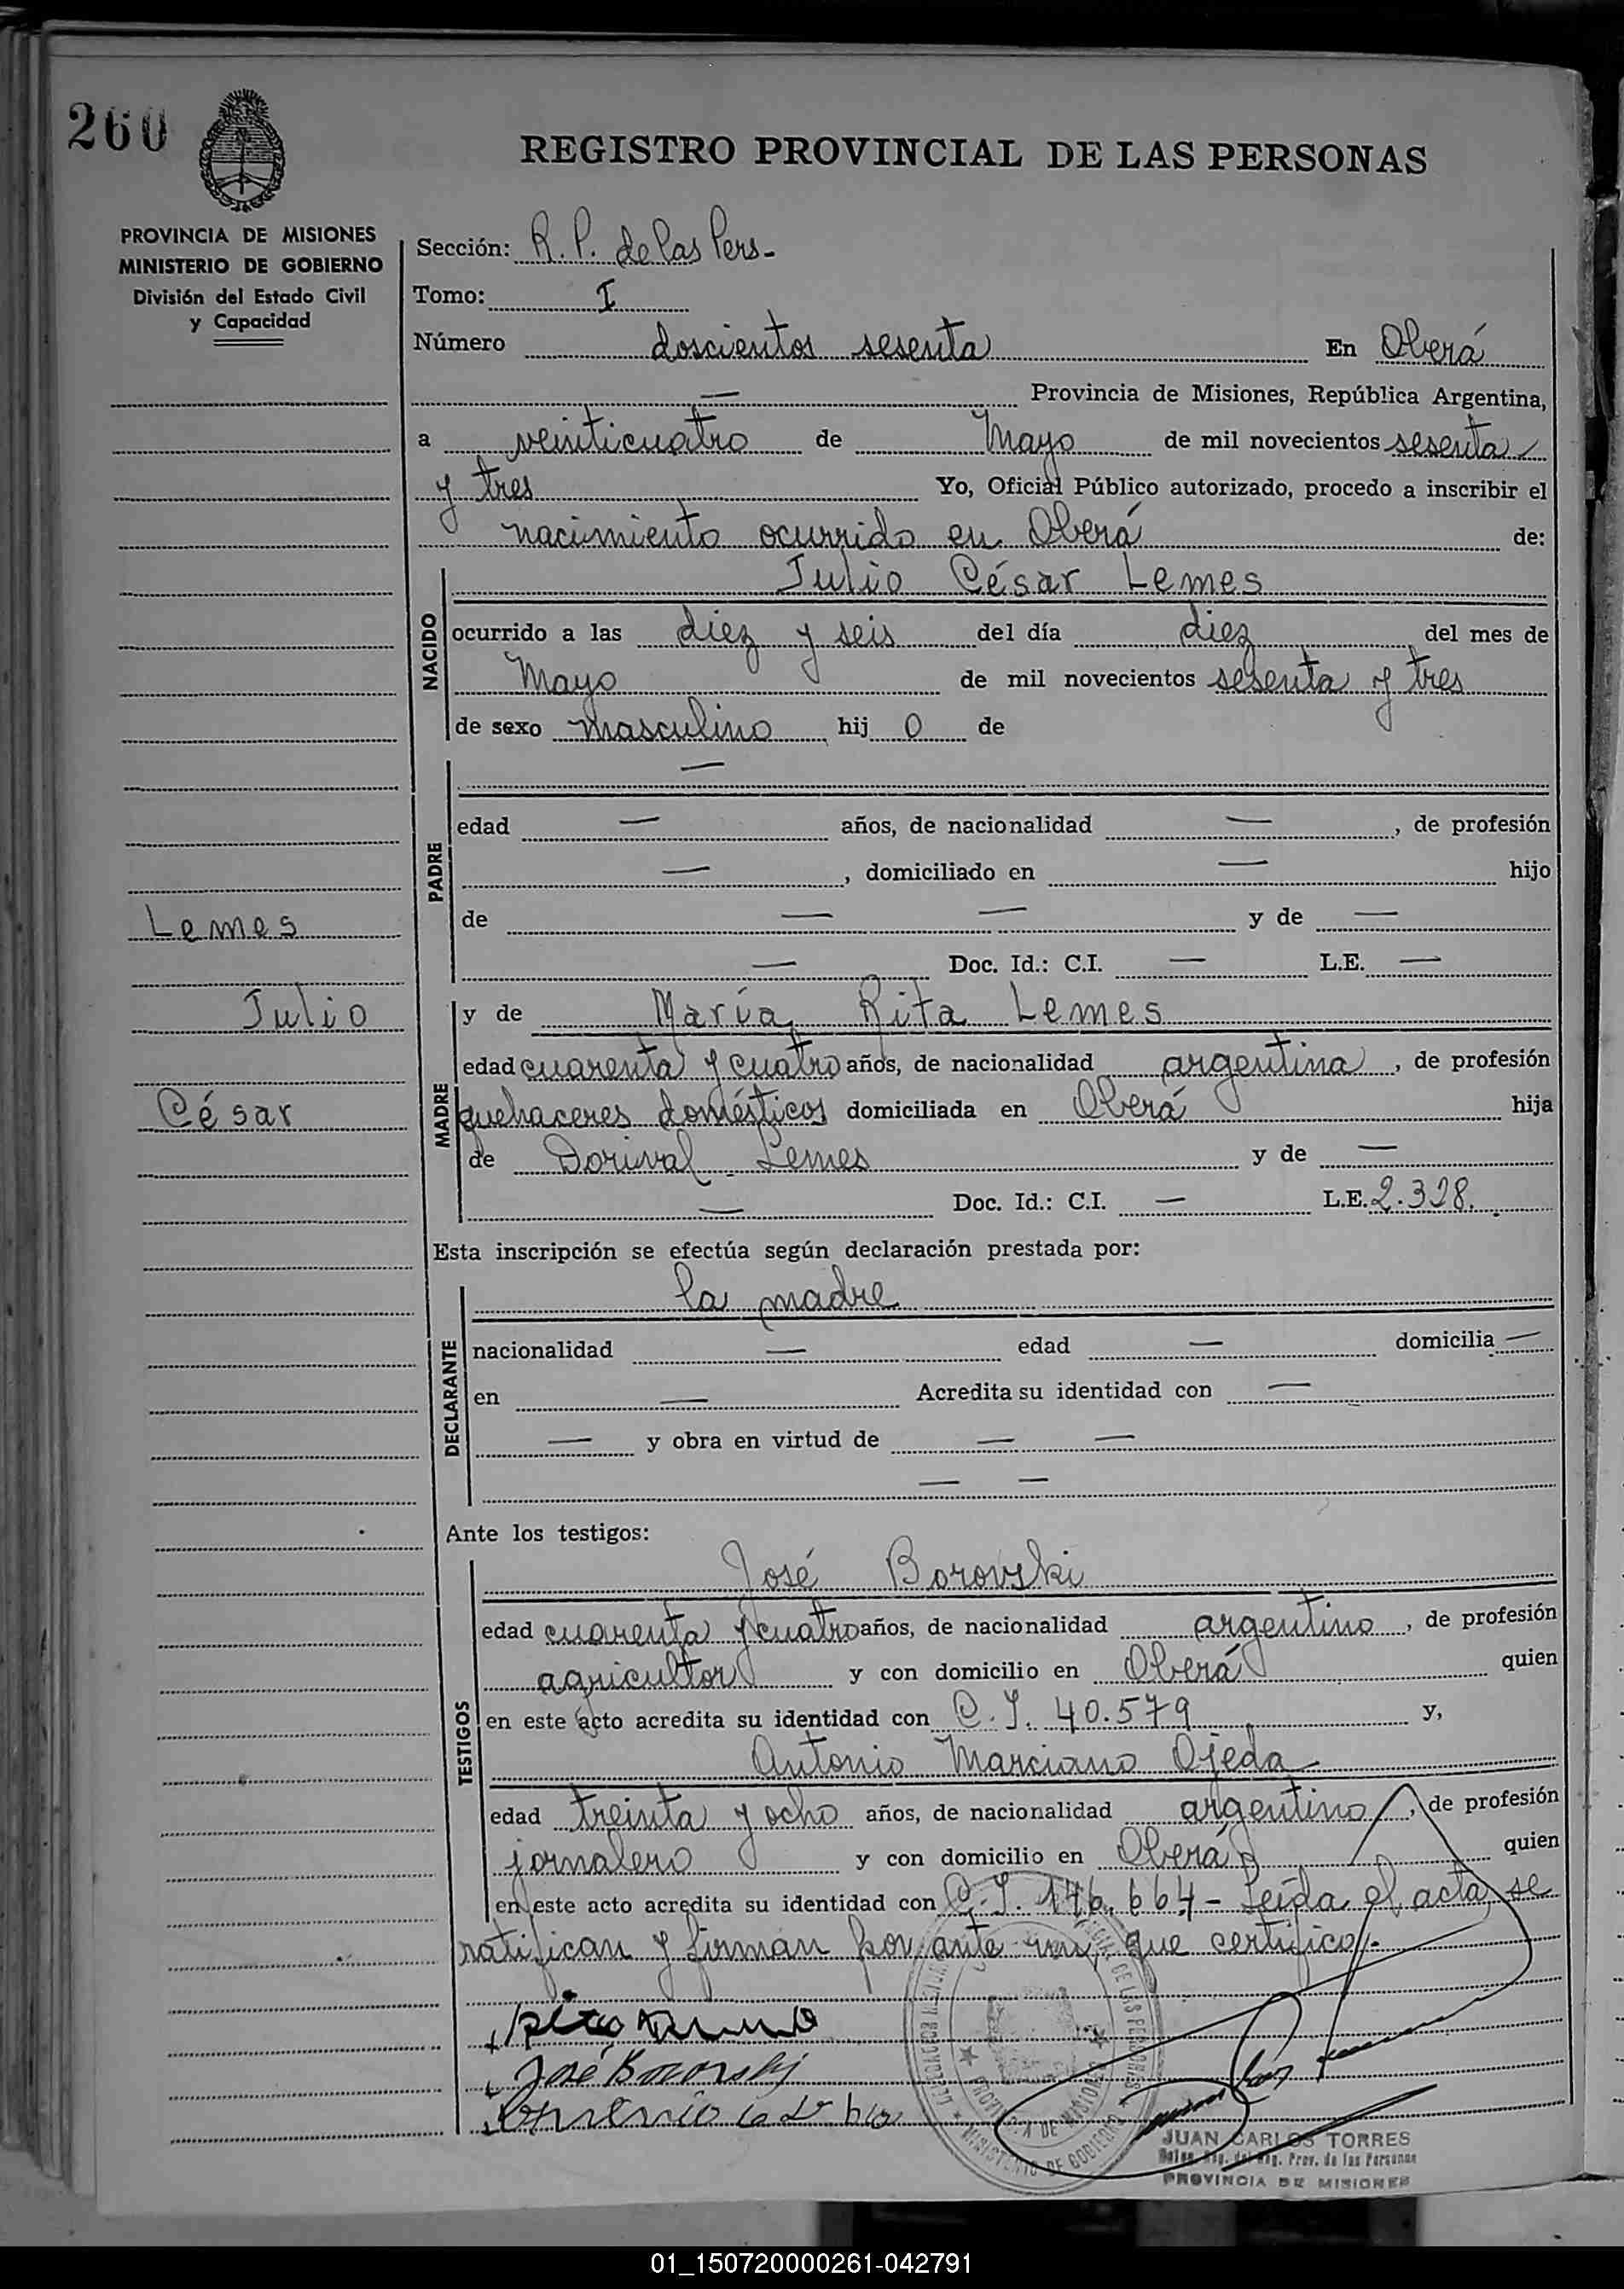 260
REGISTRO PROVINCIAL DE LAS PERSONAS
PROVINCIA DE MISIONES
MINISTERIO DE GOBIERNO
División del Estado Civil
y Capacidad
Sección: R. P. de las Pers-
Tomo: I
Número doscientos sesenta En Oberá
— Provincia de Misiones, República Argentina,
a veinticuatro de Mayo de mil novecientos sesenta
y tres Yo, Oficial Público autorizado, procedo a inscribir el
nacimiento ocurrido en Oberá de:
NACIDO
Julio César Lemes
ocurrido a las diez y seis del día diez del mes de
Mayo de mil novecientos sesenta y tres
de sexo masculino hij o de
PADRE
—
edad — años, de nacionalidad —, de profesión
—, domiciliado en — hijo
de — — y de —
— Doc. Id.: C.I. — L.E. —
Lemes
Julio
César
MADRE
y de María Rita Lemes
edad cuarenta y cuatro años, de nacionalidad argentina, de profesión
quehaceres domésticos domiciliada en Oberá hija
de Dorival Lemes y de —
— Doc. Id.: C.I. — L.E. 2.328.
Esta inscripción se efectúa según declaración prestada por:
DECLARANTE
la madre
nacionalidad — edad — domicilia —
en — Acredita su identidad con —
— y obra en virtud de — —
— —
Ante los testigos:
TESTIGOS
José Borovski
edad cuarenta y cuatro años, de nacionalidad argentino, de profesión
agricultor y con domicilio en Oberá quien
en este acto acredita su identidad con C. I. 40.579 y,
Antonio Marciano Ojeda
edad treinta y ocho años, de nacionalidad argentino, de profesión
jornalero y con domicilio en Oberá quien
en este acto acredita su identidad con C. I. 146.664 - Leída el acta se
ratifican y firman por ante mí, que certifico.-
José Borovski
PROVINCIA DE MISIONES
MINISTERIO DE GOBIERNO
JUAN CARLOS TORRES
Prov. de las Personas
PROVINCIA DE MISIONES
01_150720000261-042791